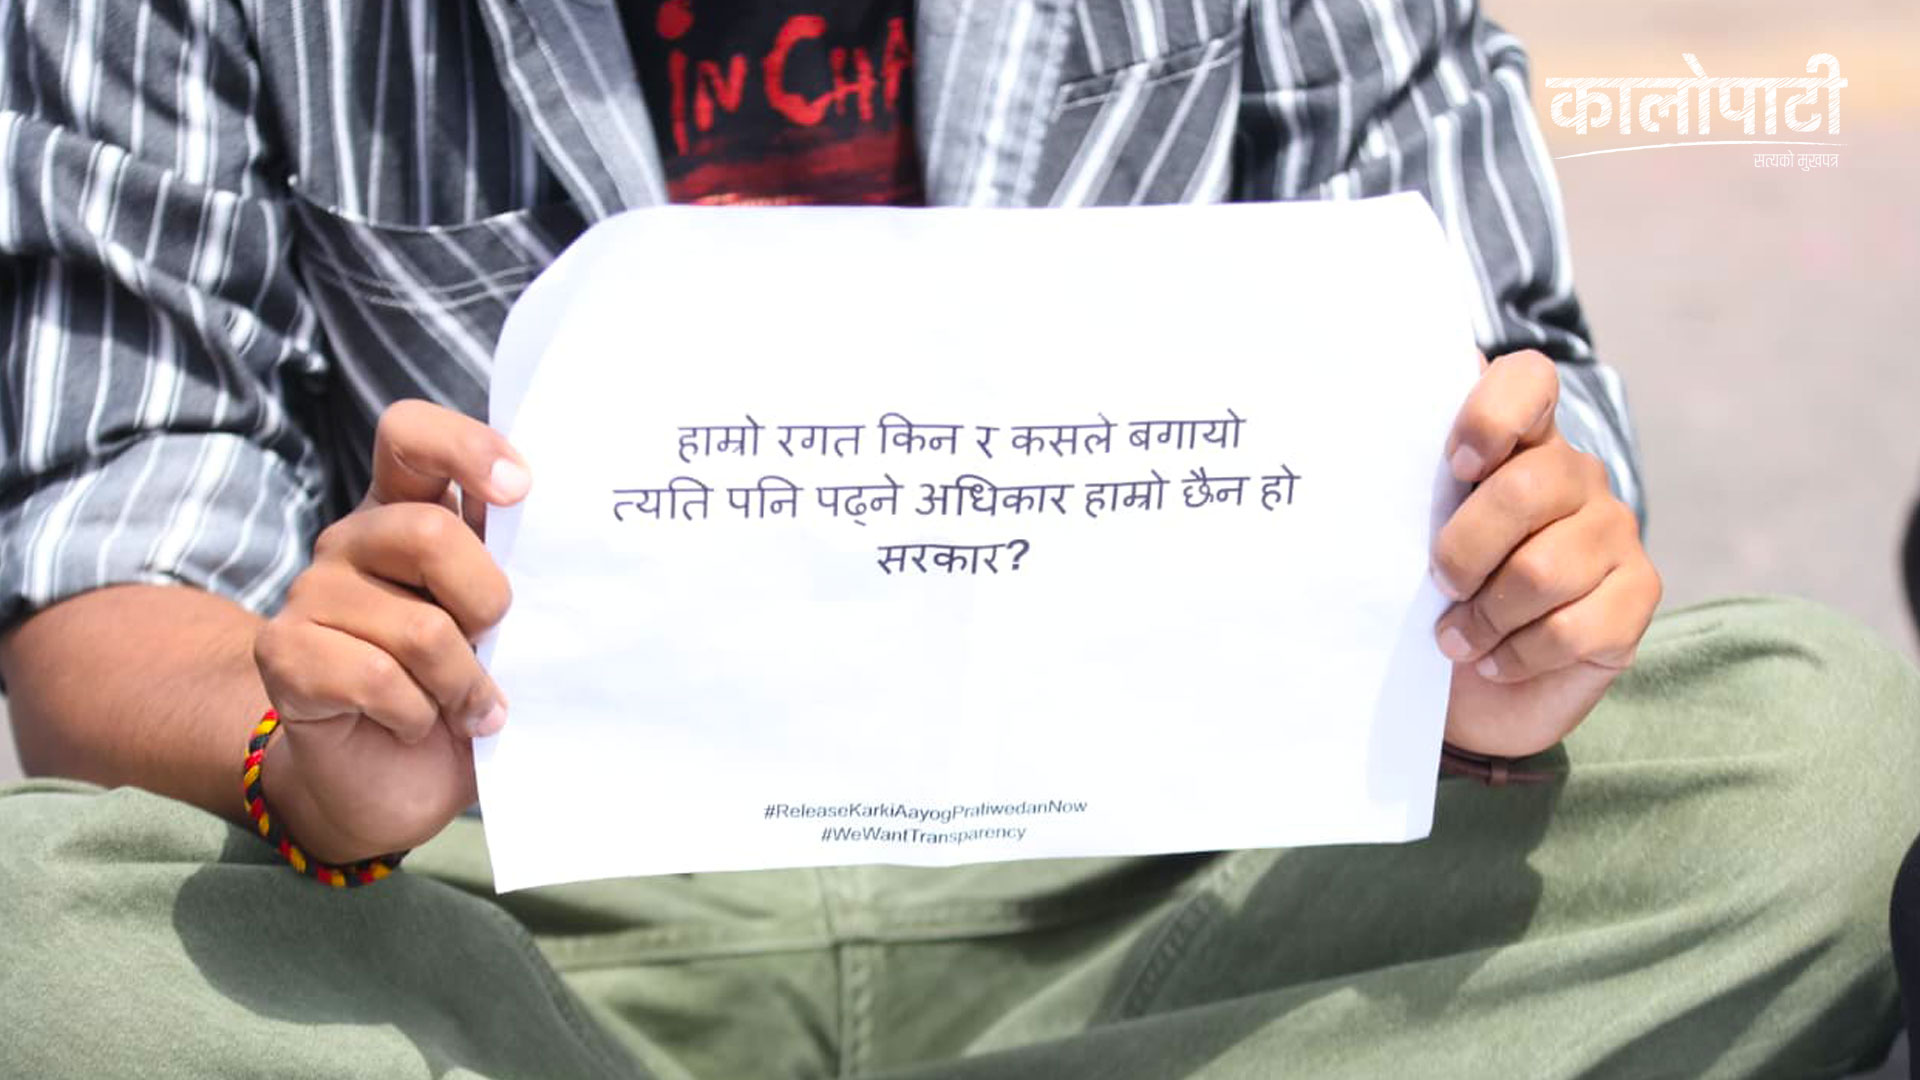 in CHA
कालोपाटी
सत्यको मुखपत्र
हाम्रो रगत किन र कसले बगायो
त्यति पनि पढ्ने अधिकार हाम्रो छैन हो
सरकार?
#ReleaseKarkiAayogPratiwedanNow
#WeWantTransparency